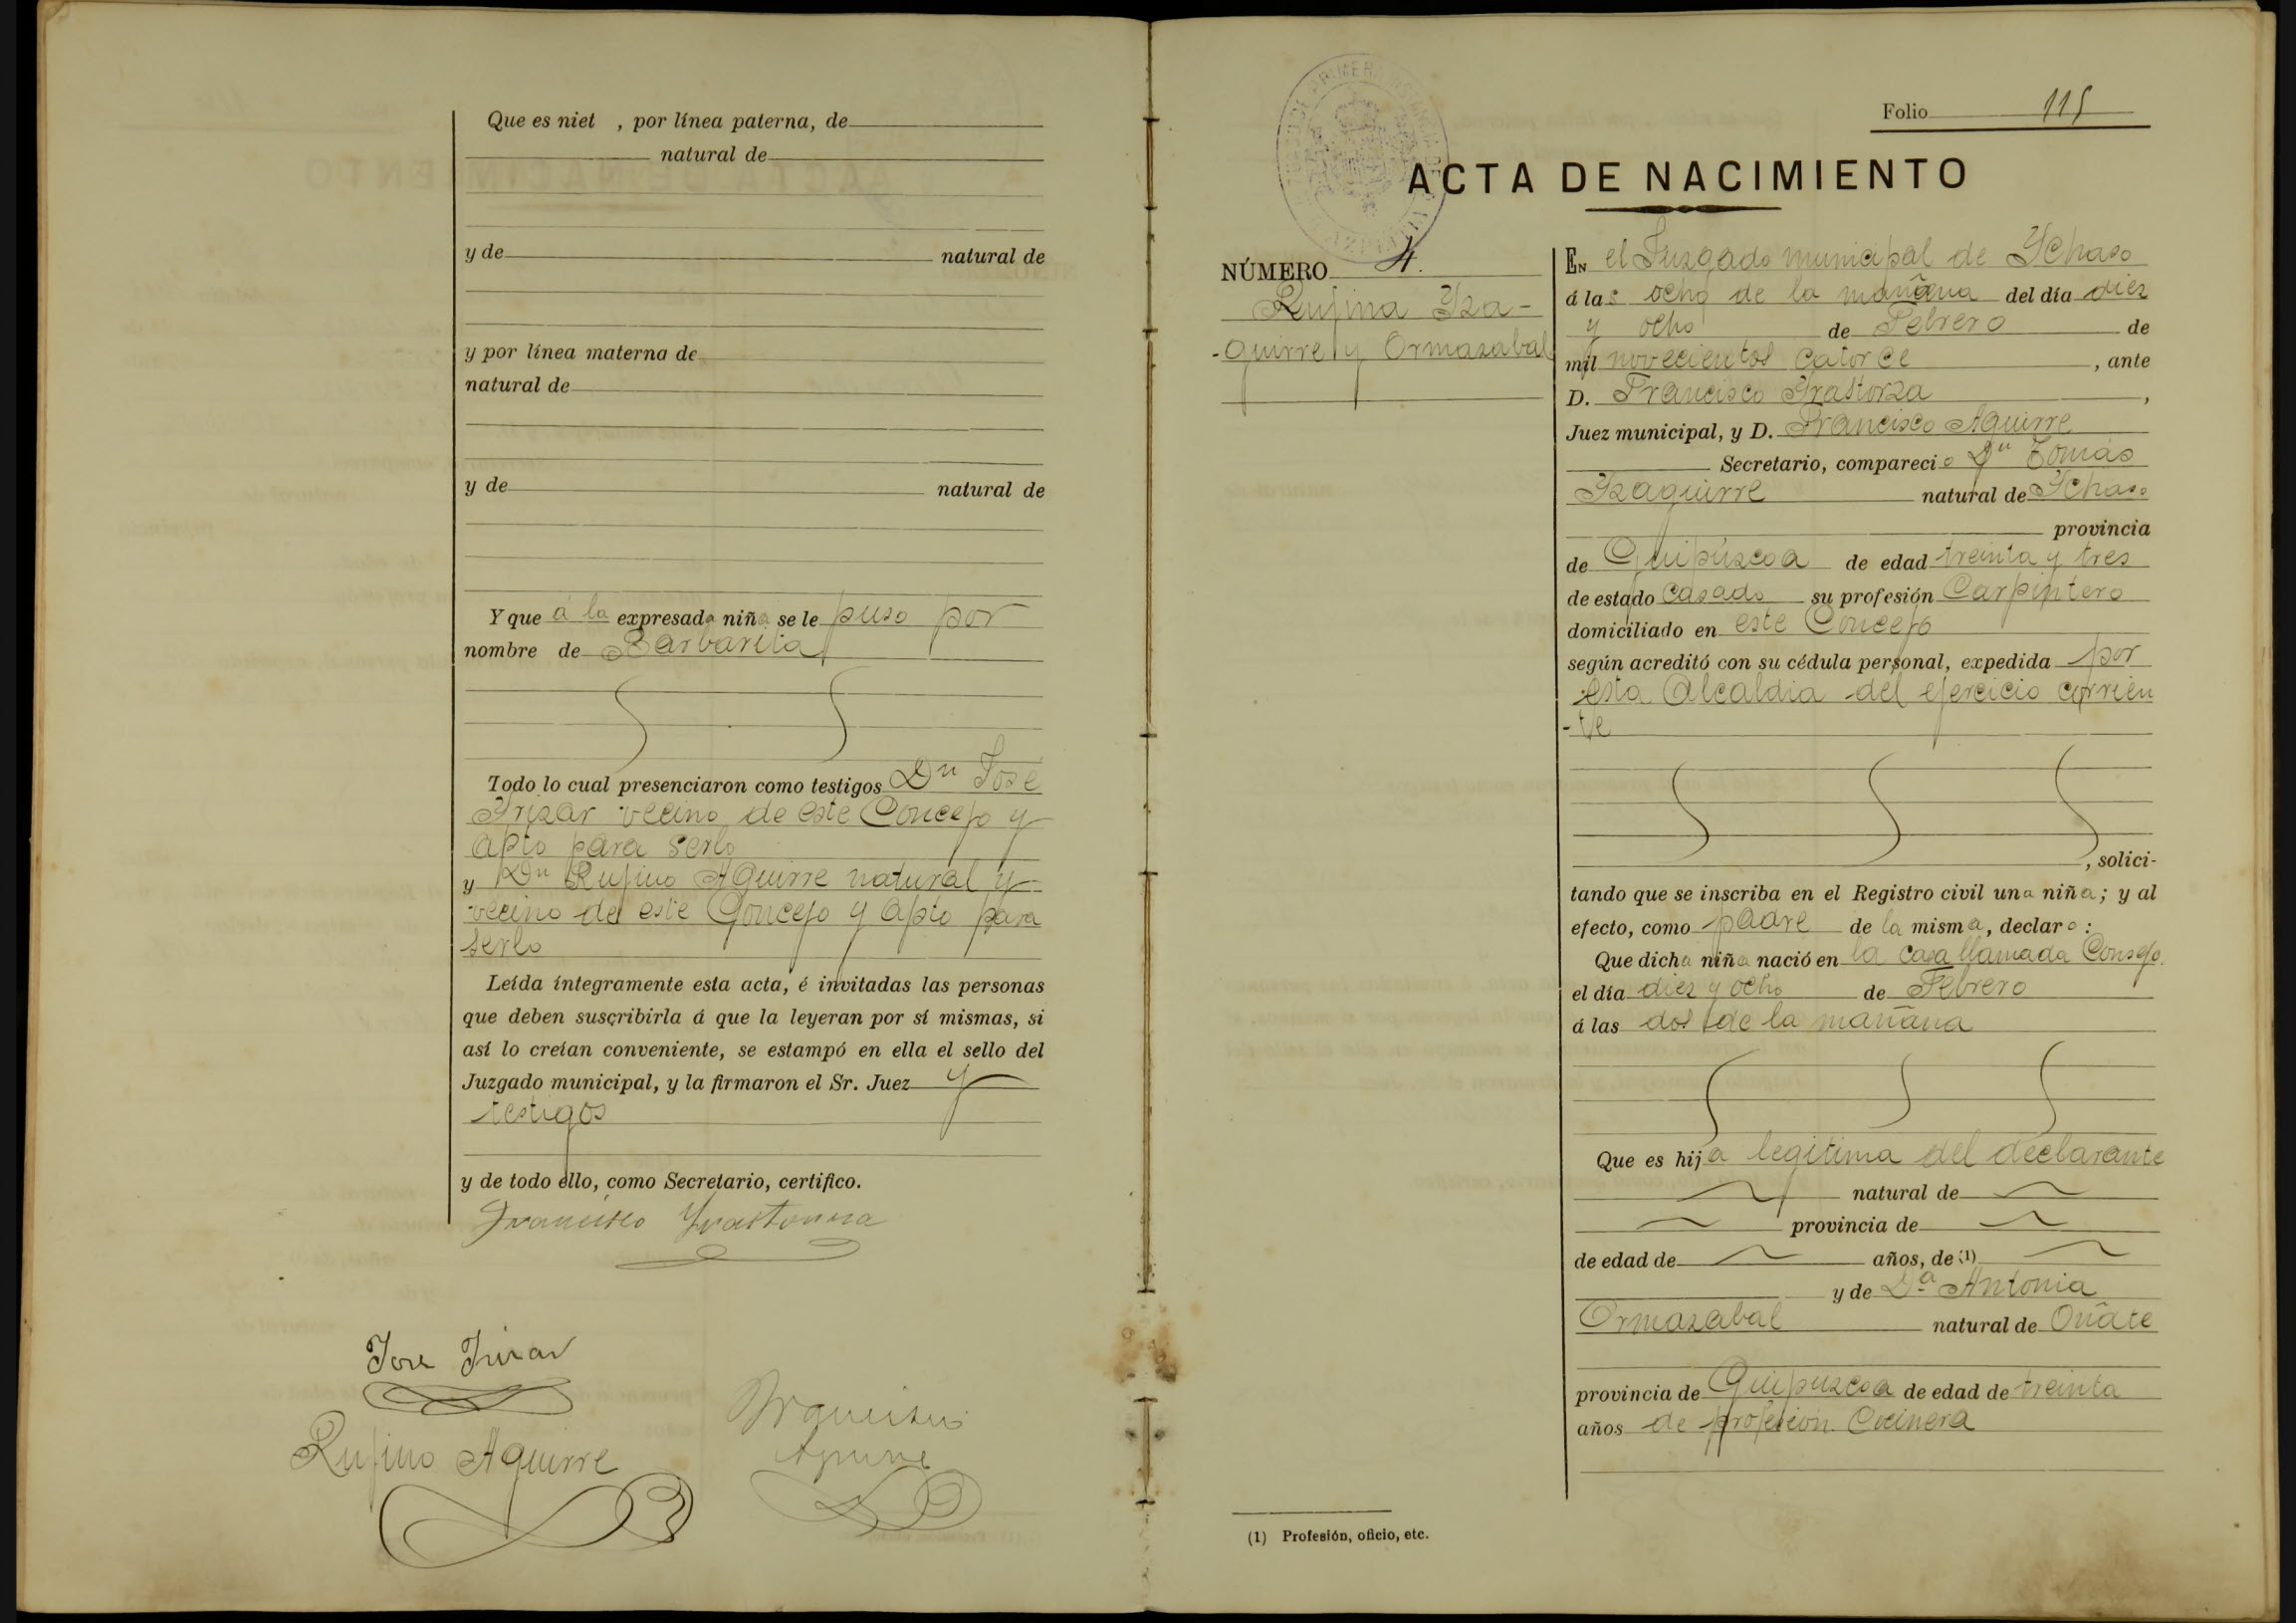 Que es niet , por línea paterna, de
natural de
y de natural de
y por línea materna de
natural de
y de natural de
Y que á la expresada niña se le puso por
nombre de Barbarita
Todo lo cual presenciaron como testigos Dn José
Yrizar vecino de este Concejo y
apto para serlo
y Dn Rufino Aguirre natural y
vecino de este Concejo y apto para
serlo
Leída íntegramente esta acta, é invitadas las personas
que deben suscribirla á que la leyeran por sí mismas, si
así lo creían conveniente, se estampó en ella el sello del
Juzgado municipal, y la firmaron el Sr. Juez y
testigos
y de todo ello, como Secretario, certifico.
Francisco Yrastorza
Jose Irizar
Rufino Aguirre
Francisco
Aguirre
Folio 115
ACTA DE NACIMIENTO
NÚMERO 4.
Rufina Yza-
-guirre y Ormazabal
EN el Juzgado municipal de Ychaso
á las ocho de la mañana del día diez
y ocho de Febrero de
mil novecientos catorce , ante
D. Francisco Yrastorza ,
Juez municipal, y D. Francisco Aguirre
Secretario, compareció Dn Tomás
Yzaguirre natural de Ychaso
provincia
de Guipúzcoa de edad treinta y tres
de estado casado su profesión Carpintero
domiciliado en este Concejo
según acreditó con su cédula personal, expedida por
esta Alcaldia del ejercicio corrien
-te
, solici-
tando que se inscriba en el Registro civil una niña; y al
efecto, como padre de la misma, declaro:
Que dicha niña nació en la casa llamada Consejo
el día diez y ocho de Febrero
á las dos de la mañana
Que es hija legitima del declarante
natural de
provincia de
de edad de años, de (1)
y de Da Antonia
Ormazabal natural de Oñate
provincia de Guipuzcoa de edad de treinta
años de profesion Cocinera
(1) Profesión, oficio, etc.